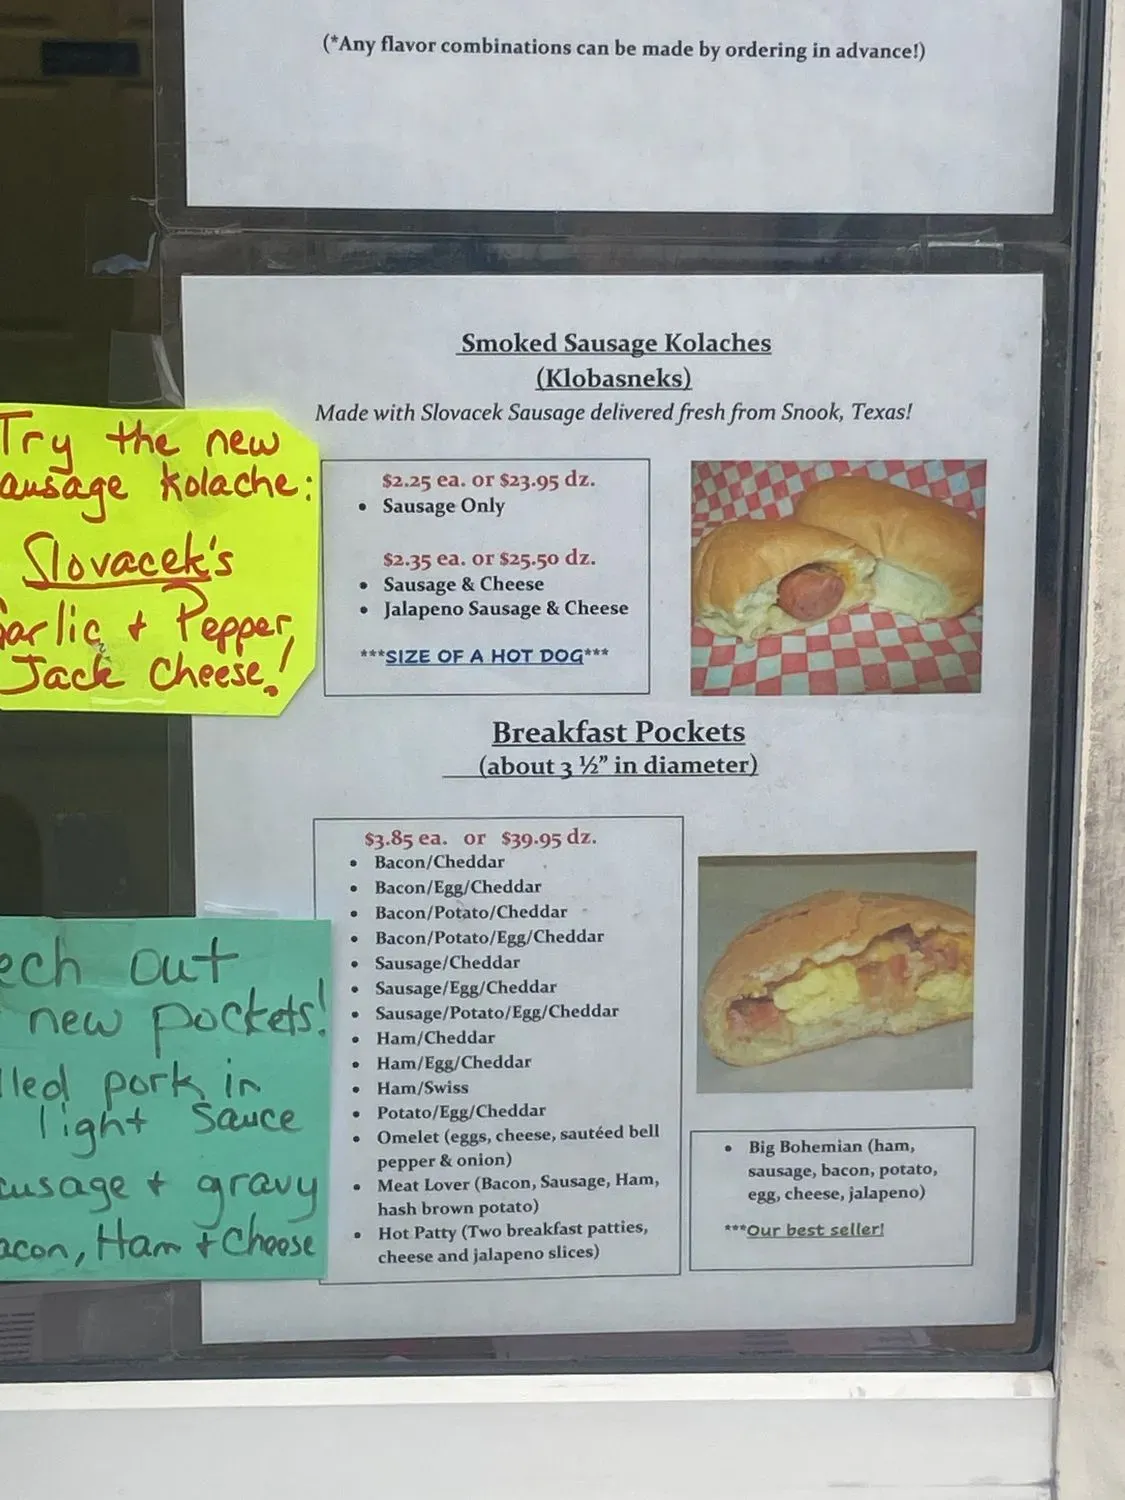 (*Any flavor combinations can be made by ordering in advance!)
Smoked Sausage Kolaches
(Klobasneks)
Made with Slovacek Sausage delivered fresh from Snook, Texas!
$2.25 ea. or $23.95 dz.
• Sausage Only
$2.35 ea. or $25.50 dz.
• Sausage & Cheese
• Jalapeno Sausage & Cheese
***SIZE OF A HOT DOG***
Try the new
ausage Kolache:
Slovacek's
arlic + Pepper,
Jack Cheese!
Breakfast Pockets
(about 3 ½" in diameter)
$3.85 ea. or $39.95 dz.
• Bacon/Cheddar
• Bacon/Egg/Cheddar
• Bacon/Potato/Cheddar
• Bacon/Potato/Egg/Cheddar
• Sausage/Cheddar
• Sausage/Egg/Cheddar
• Sausage/Potato/Egg/Cheddar
• Ham/Cheddar
• Ham/Egg/Cheddar
• Ham/Swiss
• Potato/Egg/Cheddar
• Omelet (eggs, cheese, sautéed bell
pepper & onion)
• Meat Lover (Bacon, Sausage, Ham,
hash brown potato)
• Hot Patty (Two breakfast patties,
cheese and jalapeno slices)
• Big Bohemian (ham,
sausage, bacon, potato,
egg, cheese, jalapeno)
***Our best seller!
ech out
new pockets!
lled pork in
light sauce
ausage + gravy
acon, Ham + Cheese